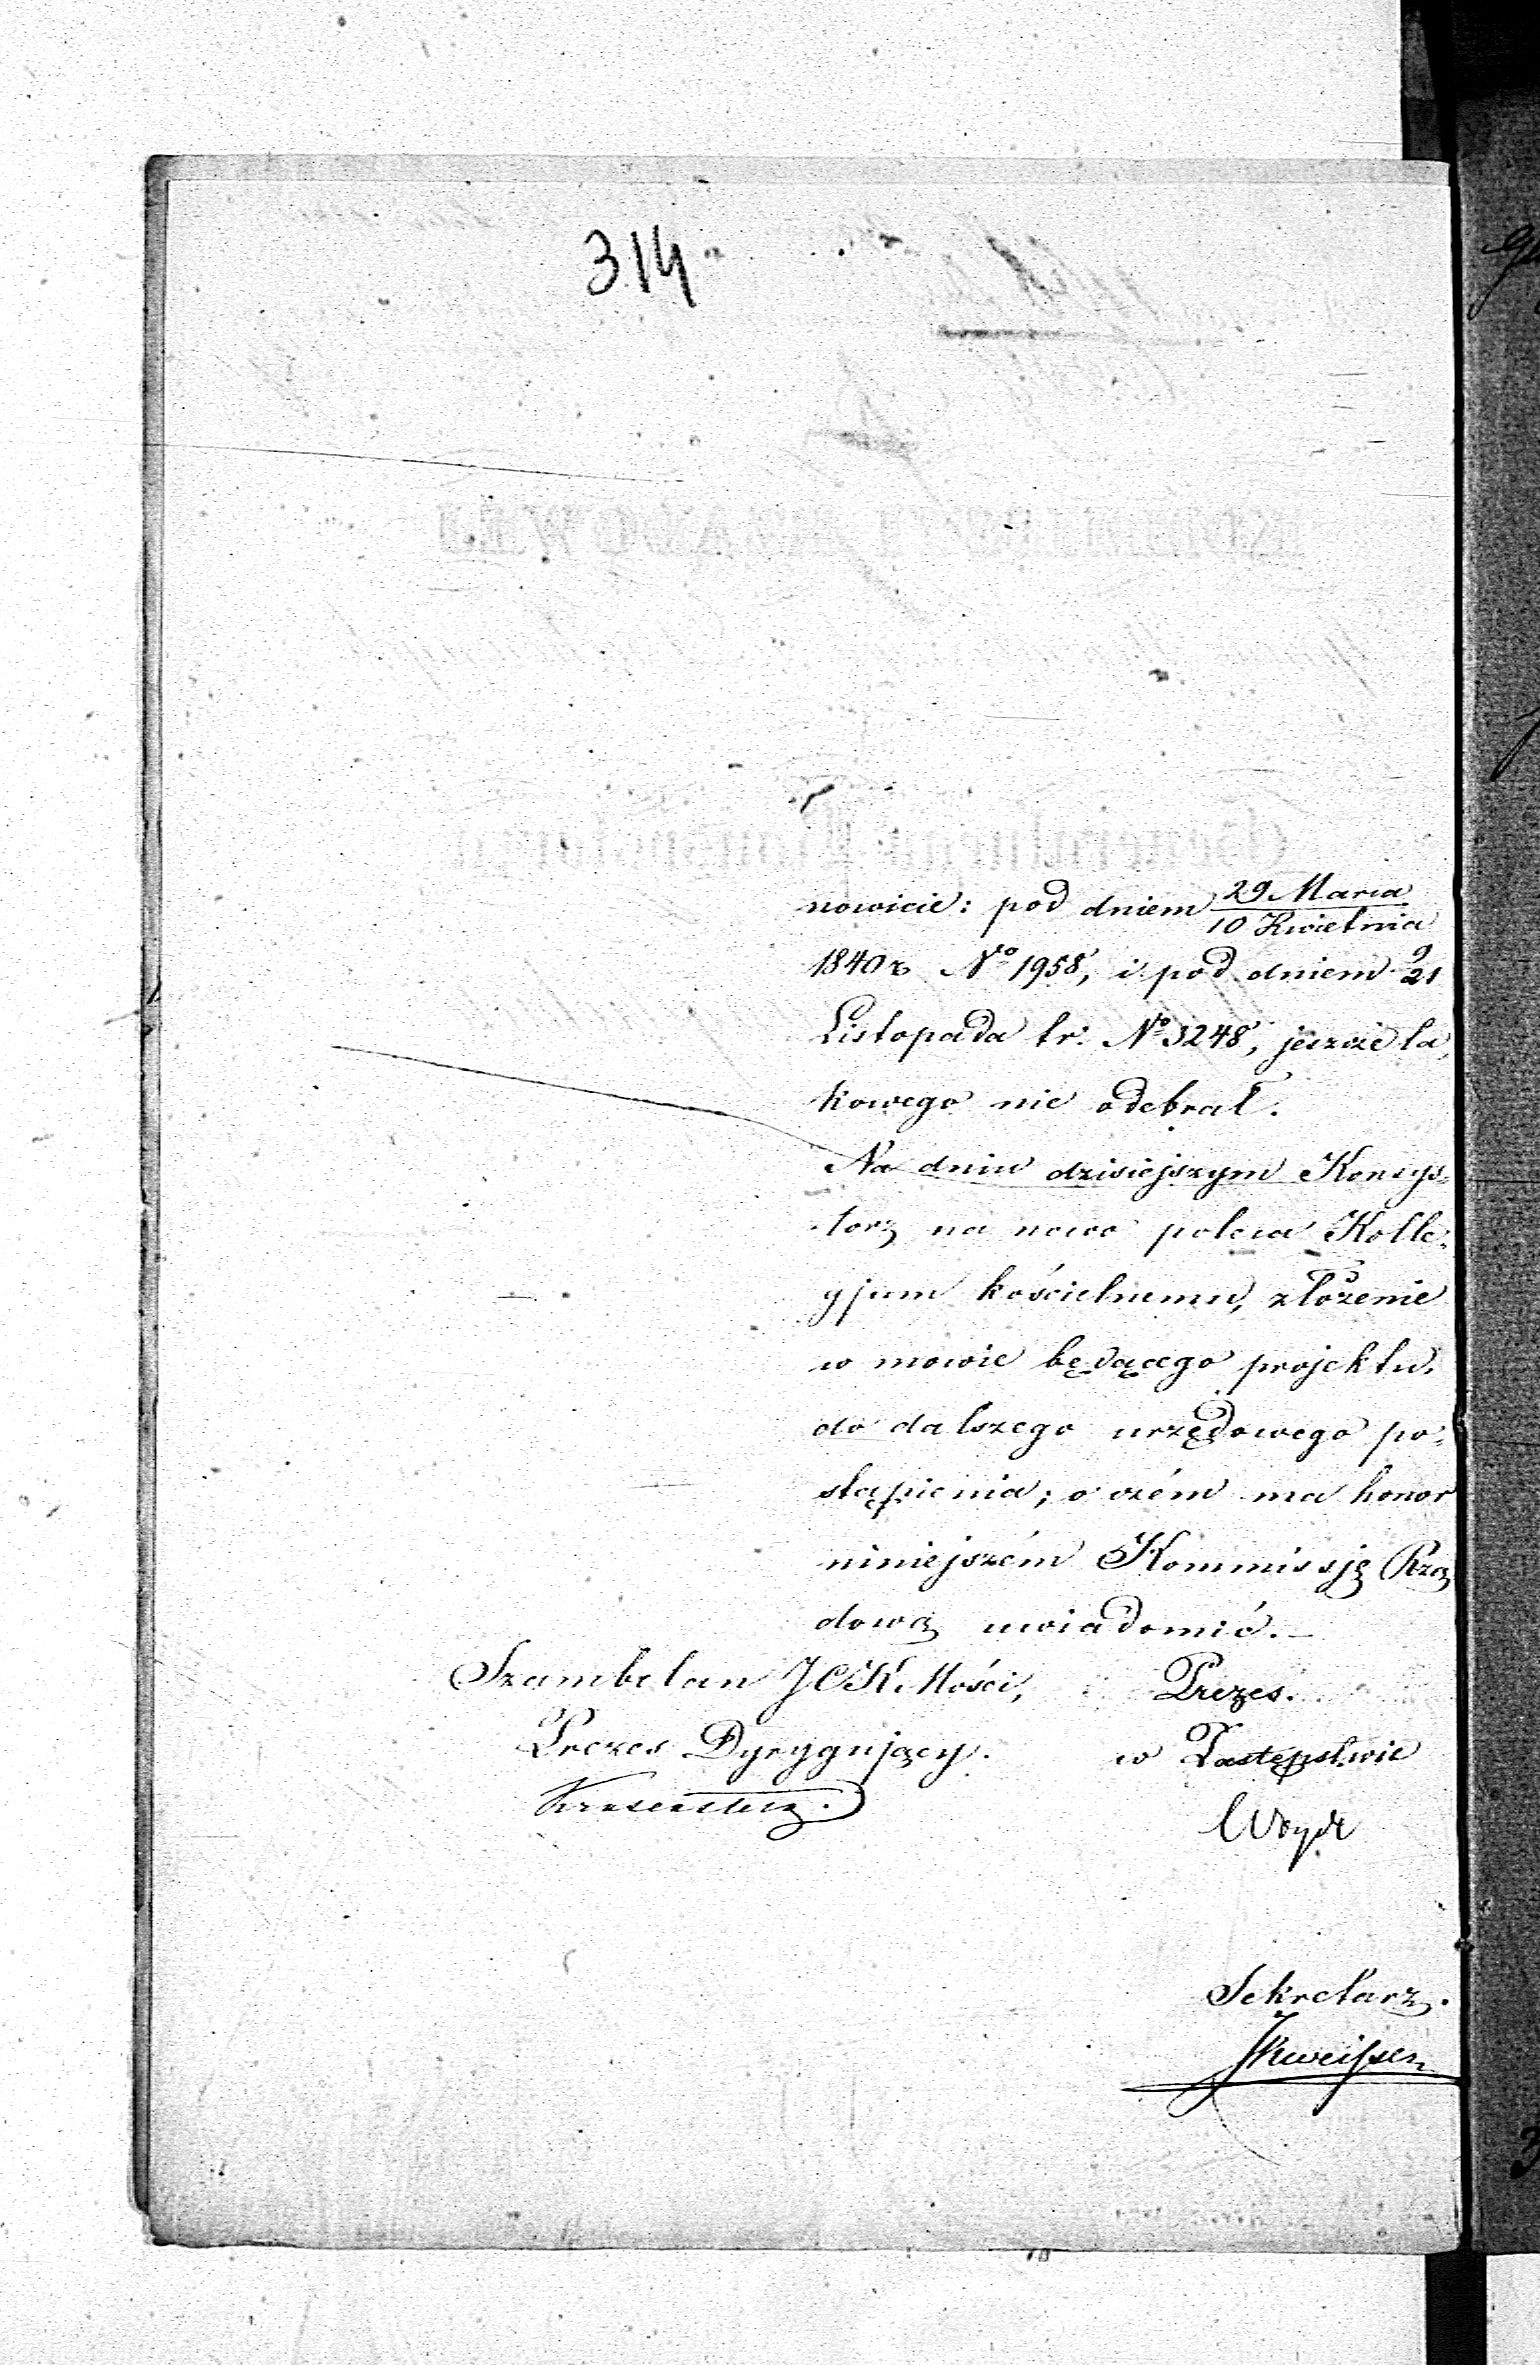 314
nowicie: pod dniem 29 Marca / 10 Kwietnia
1840 r. No 1958, i pod dniem 9/21
Listopada t.r. No 3248, jeszcze ta-
kowego nie odebrał.
Na dniu dzisiejszym Konsys-
torz na nowo poleca Kolle-
gjum kościelnemu, złożenie
w mowie będącego projektu,
do dalszego urzędowego po-
stąpienia; o czém ma honor
niniejszém Kommissję Rzą
dową uwiadomić.
Szambelan JCKMości, Prezes.
Prezes Dyrygujący. w Zastępstwie
Sekretarz.